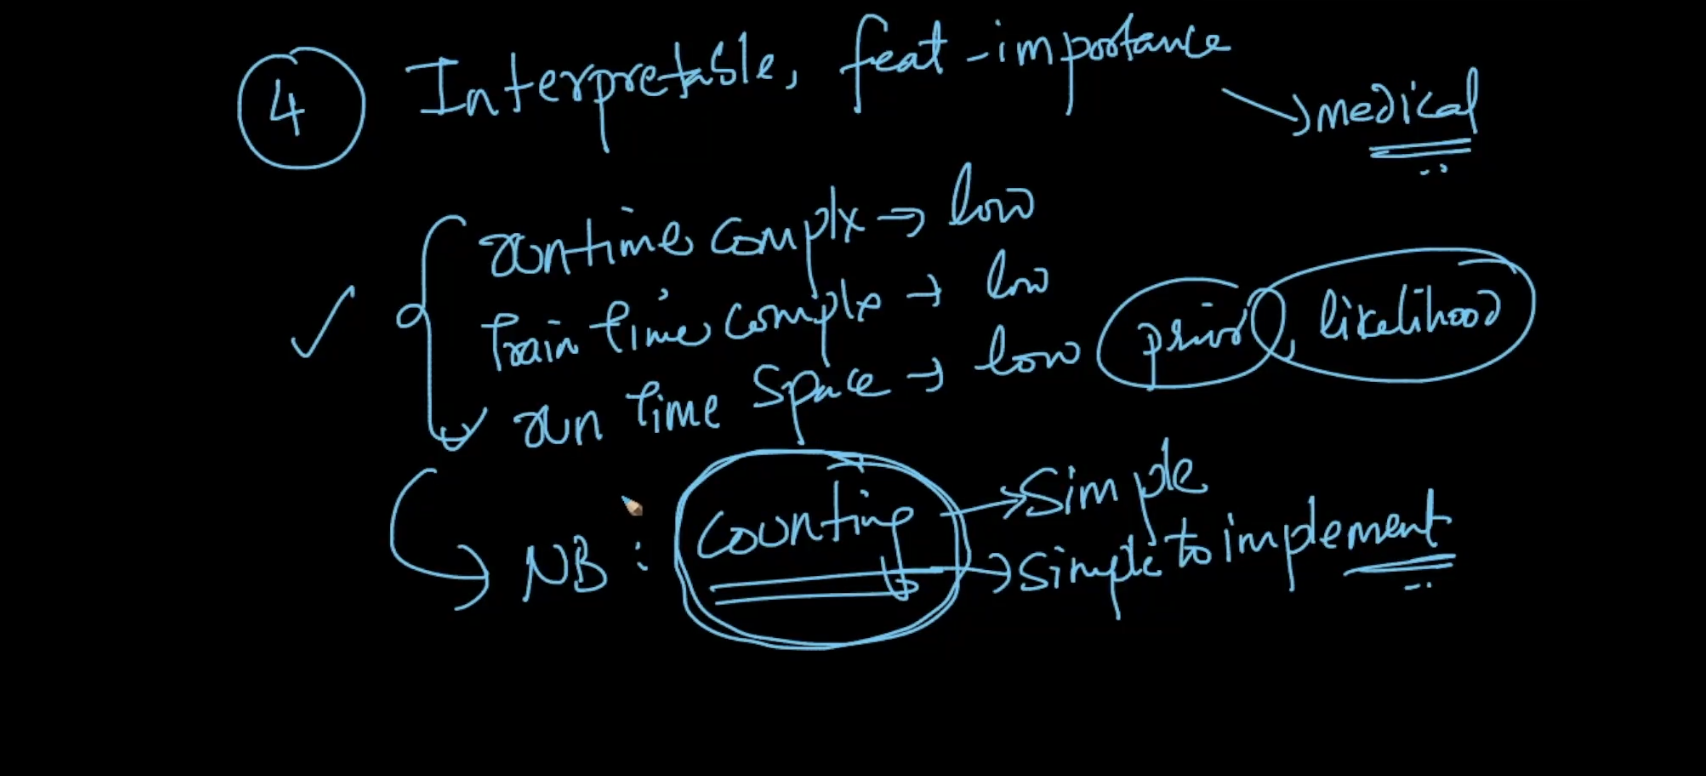 4 Interpretable, feat-importance
→ medical
runtime complx → low
Train time complx → low
run time space → low prior, likelihood
NB : counting → simple
→ simple to implement